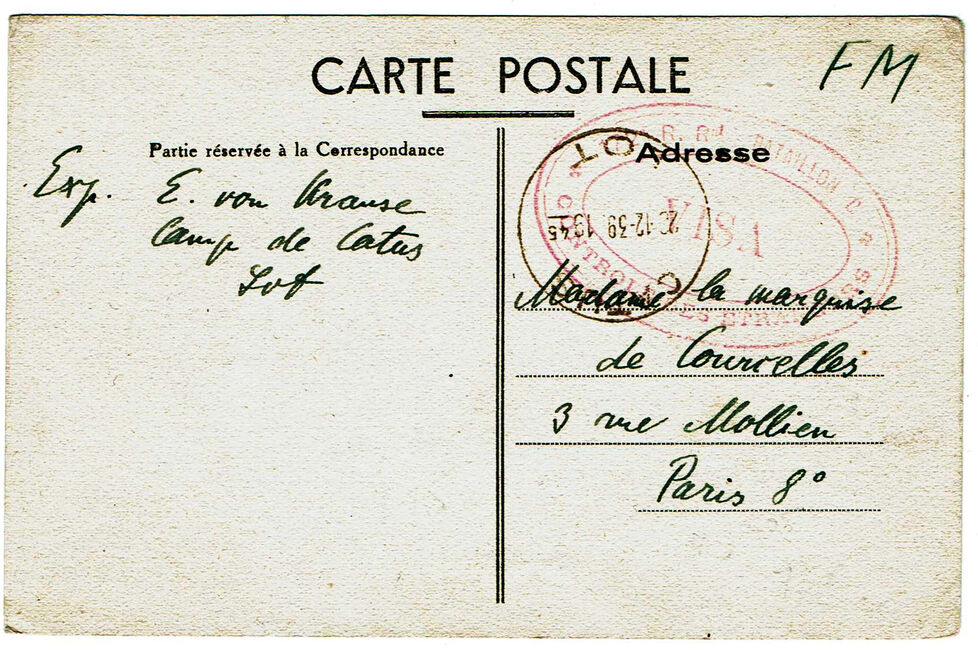 CARTE POSTALE
FM
Partie réservée à la Correspondance
Exp. E. von Krause
Camp de Catus
Lot
Adresse
Madame la marquise
de Courcelles
3 rue Mollien
Paris 8°
LOT
12-39
1945
VISA